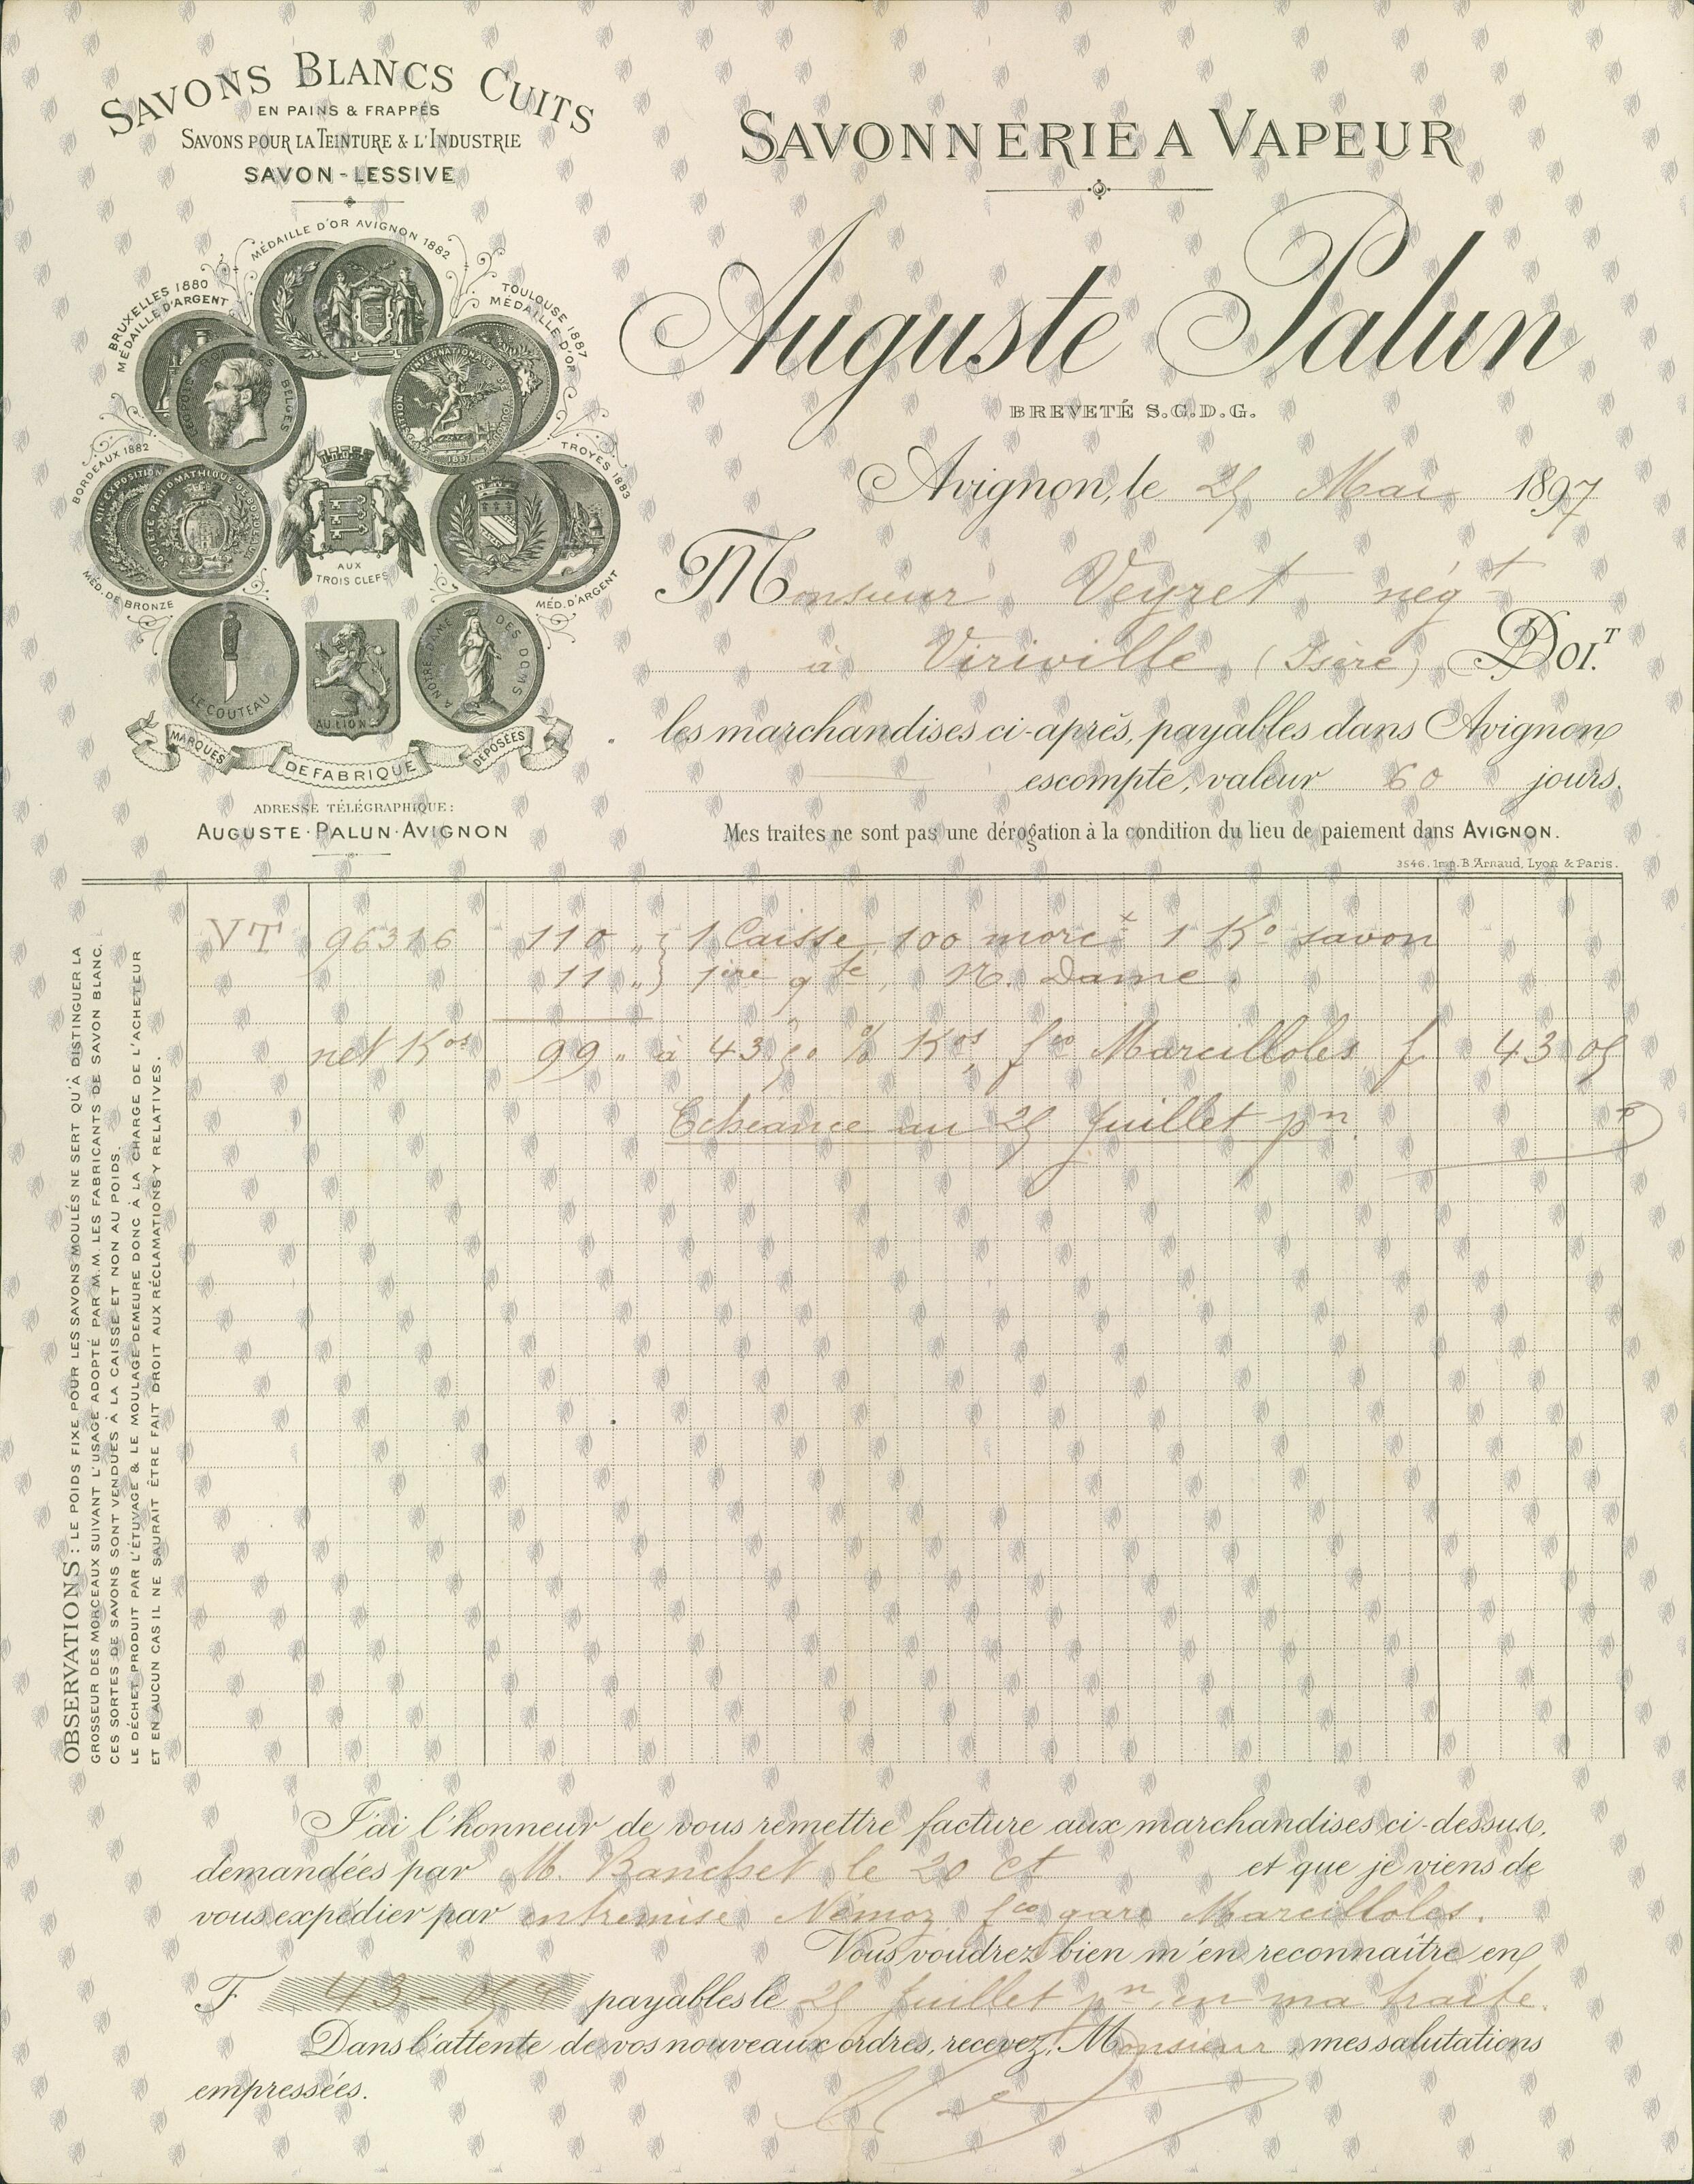 SAVONS BLANCS CUITS
EN PAINS & FRAPPÉS
SAVONS POUR LA TEINTURE & L'INDUSTRIE
SAVON-LESSIVE
MÉDAILLE D'OR AVIGNON 1882
BRUXELLES 1880
MÉDAILLE D'ARGENT
TOULOUSE 1887
MÉDAILLE D'OR
BELGES
EXPOSITION INTERNATIONALE DE TOULOUSE
1887
BORDEAUX 1882
MÉD. DE BRONZE
XIIE EXPOSITION
SOCIÉTÉ PHILOMATHIQUE DE BORDEAUX
TROYES 1883
MÉD. D'ARGENT
AUX
TROIS CLEFS
LE COUTEAU
AU LION
A NOTRE DAME DES DOMS
MARQUES DE FABRIQUE DÉPOSÉES
ADRESSE TÉLÉGRAPHIQUE:
AUGUSTE·PALUN·AVIGNON
SAVONNERIE A VAPEUR
Auguste Palun
BREVETÉ S.G.D.G.
Avignon, le 25 Mai 1897
Monsieur Veyret négt
à Viriville (Isère) DOI.T
les marchandises ci-après, payables dans Avignon
escompte, valeur 60 jours.
Mes traites ne sont pas une dérogation à la condition du lieu de paiement dans AVIGNON.
3546. Imp. B. Arnaud, Lyon & Paris.
VT 96316 110 „ } 1 Caisse 100 morcx 1 Ko savon
11 „ } 1ère qté, N. Dame.
net Kos 99 „ à 43 50 % Kos, fco Marcilloles f 43 05
Echéance au 25 Juillet pn
OBSERVATIONS: LE POIDS FIXE POUR LES SAVONS MOULÉS NE SERT QU'À DISTINGUER LA
GROSSEUR DES MORCEAUX SUIVANT L'USAGE ADOPTÉ PAR M.M. LES FABRICANTS DE SAVON BLANC.
CES SORTES DE SAVONS SONT VENDUES À LA CAISSE ET NON AU POIDS.
LE DÉCHET PRODUIT PAR L'ÉTUVAGE & LE MOULAGE DEMEURE DONC À LA CHARGE DE L'ACHETEUR
ET EN AUCUN CAS IL NE SAURAIT ÊTRE FAIT DROIT AUX RÉCLAMATIONS Y RELATIVES.
J'ai l'honneur de vous remettre facture aux marchandises ci-dessus,
demandées par M. Banchet le 20 ct et que je viens de
vous expédier par entremise Némoz fco gare Marcilloles.
Vous voudrez bien m'en reconnaître en
F 43-05 payables le 25 Juillet pn, en ma traite.
Dans l'attente de vos nouveaux ordres, recevez, Monsieur, mes salutations
empressées.